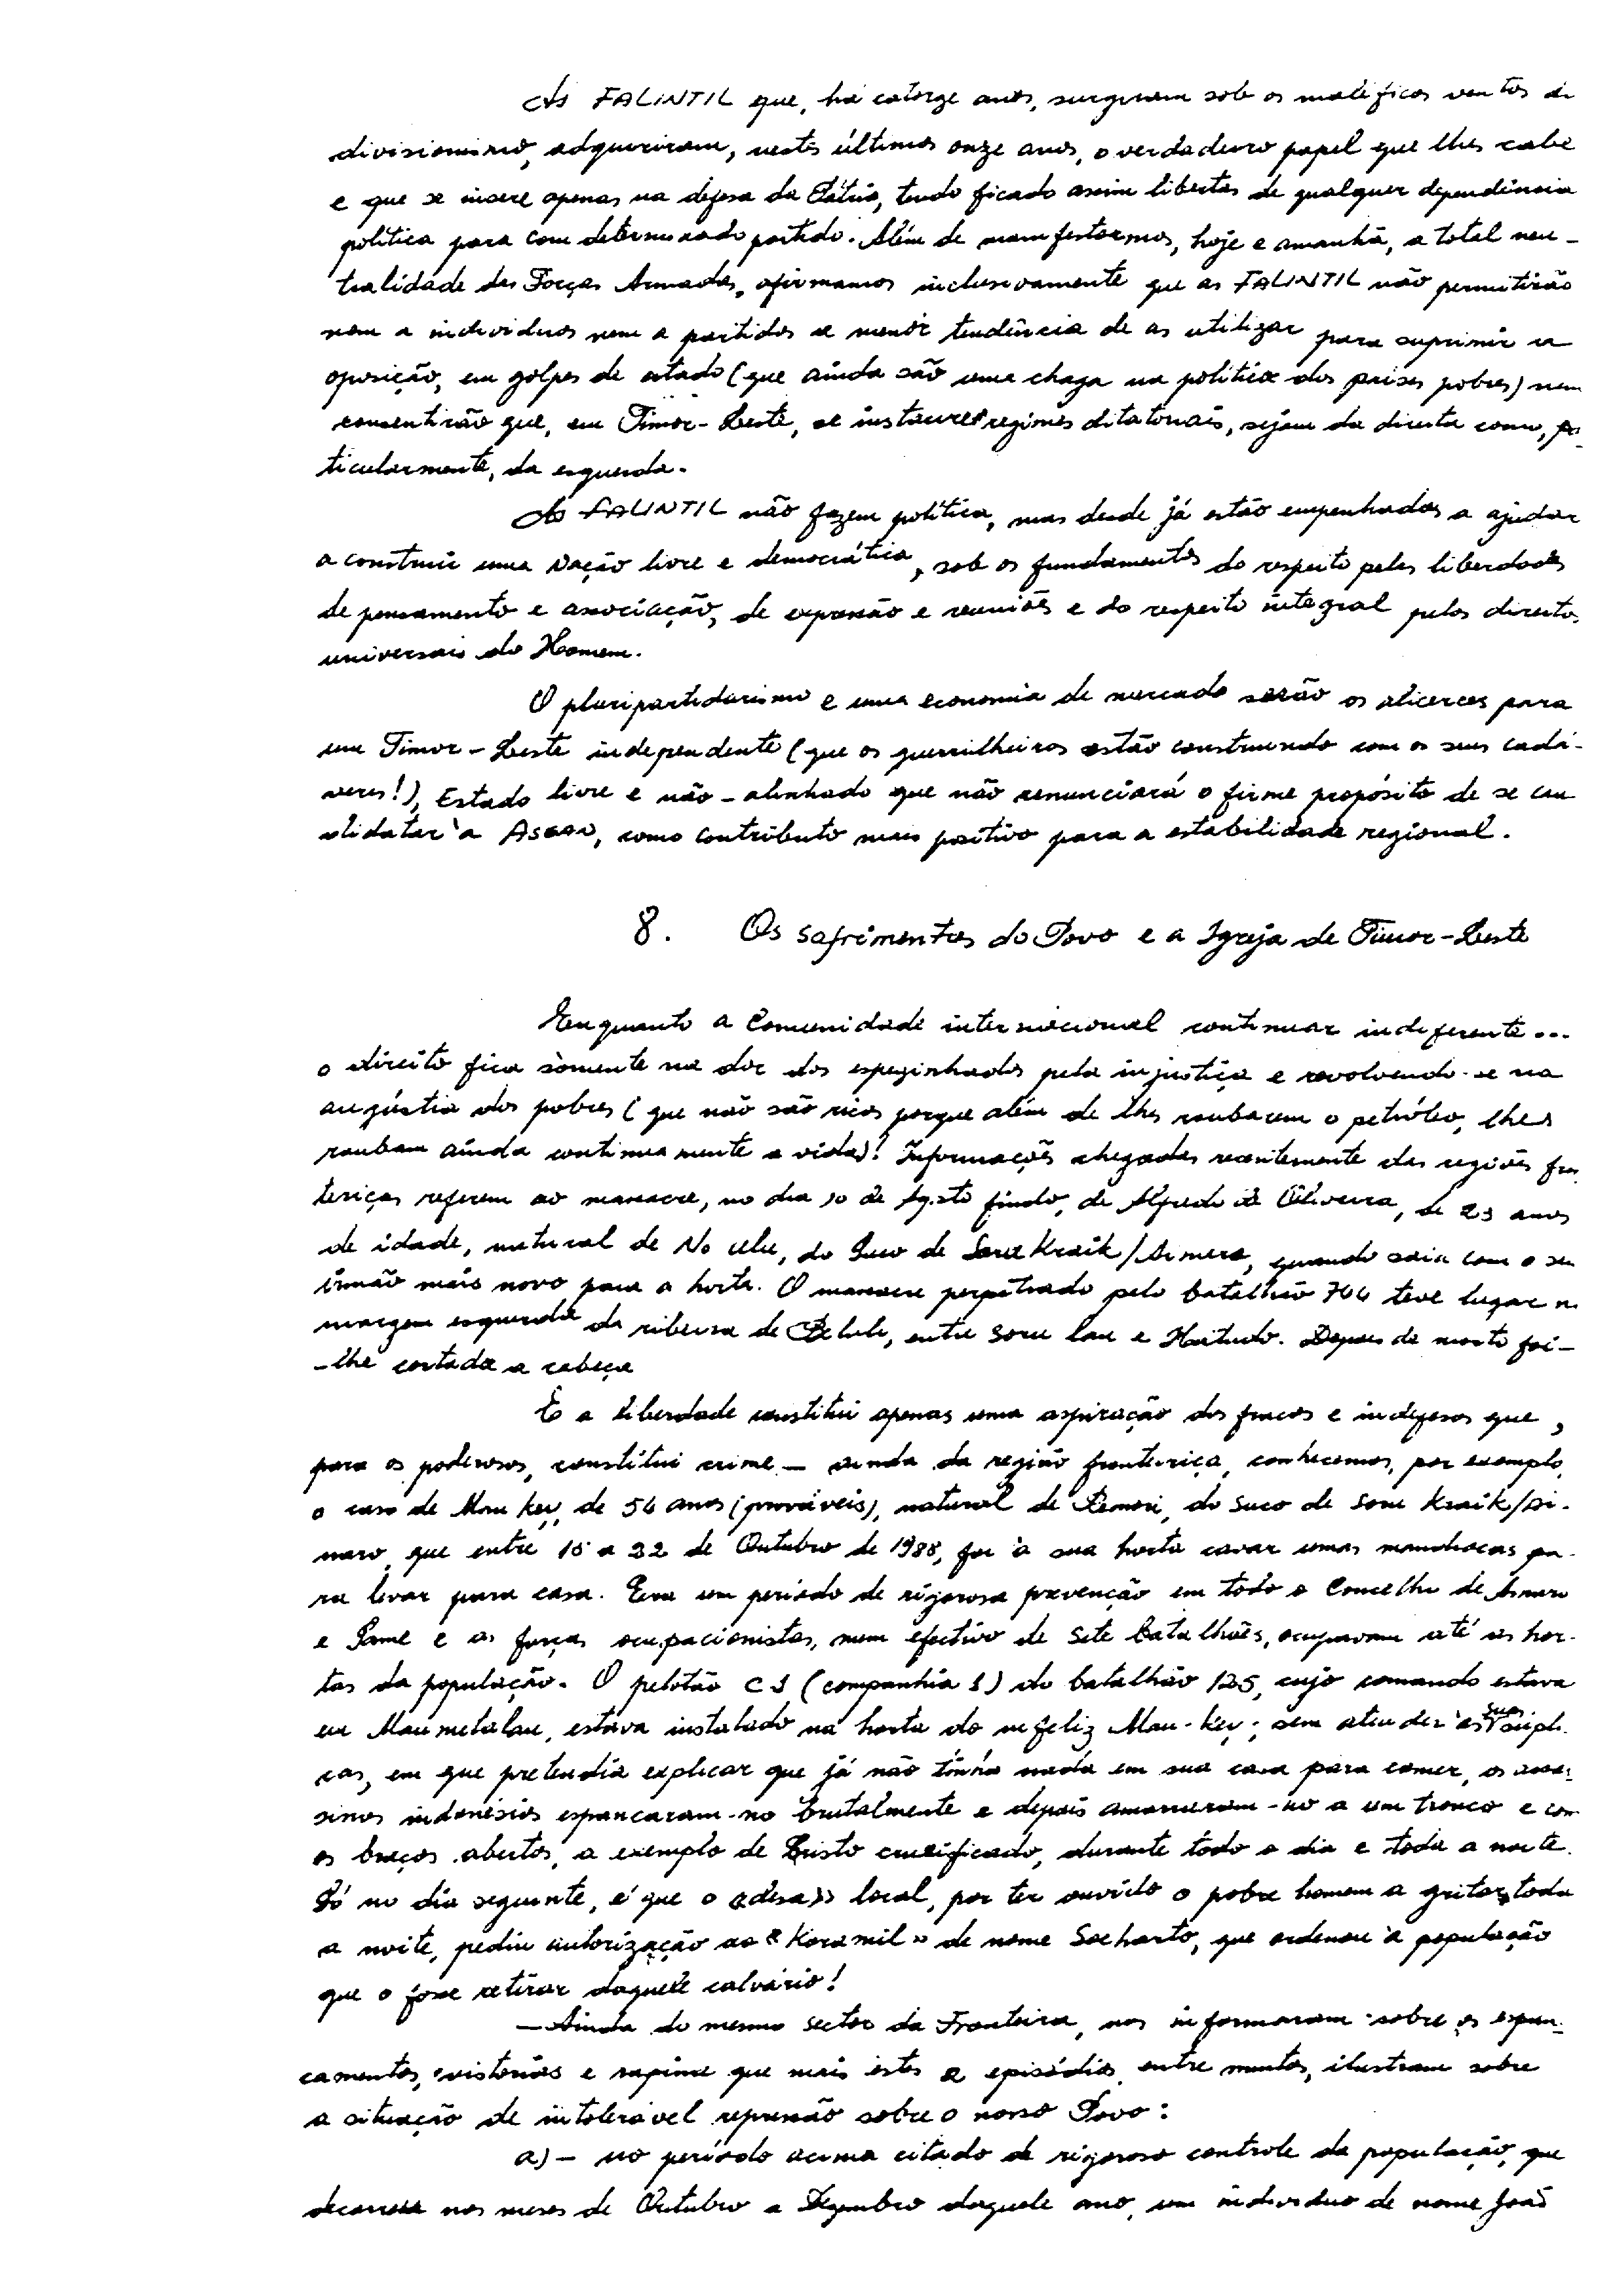 As FALINTIL que, há catorze anos, surgiram sob os maléficos ventos do
divisionismo, adquiriram, nestes últimos onze anos, o verdadeiro papel que lhes cabe
e que se insere apenas na defesa da Pátria, tendo ficado assim libertas de qualquer dependência
política para com determinado partido. Além de manifestarmos, hoje e amanhã, a total neu-
tralidade das Forças Armadas, afirmamos inclusivamente que as FALINTIL não permitirão
nem a indivíduos nem a partidos a menor tendência de as utilizar para suprimir a
oposição, em golpes de estado (que ainda são uma chaga na política dos países pobres) nem
consentirão que, em Timor-Leste, se instaure regimes ditatoriais, sejam da direita como, pa-
ticularmente, da esquerda.
As FALINTIL não fazem política, mas desde já estão empenhadas a ajudar
a construir uma Nação livre e democrática, sob os fundamentos do respeito pelas liberdades
de pensamento e associação, de expressão e reuniões e do respeito integral pelos direitos
universais do Homem.
O pluripartidarismo e uma economia de mercado serão os alicerces para
um Timor-Leste independente (que os guerrilheiros estão construindo com os seus cadá-
veres!), Estado livre e não-alinhado que não renunciará o firme propósito de se
à Asean, como contributo mais positivo para a estabilidade regional.
8. Os sofrimentos do Povo e a Igreja de Timor-Leste
Enquanto a Comunidade internacional continuar indiferente...
o direito fica sòmente na dor dos espezinhados pela injustiça e revolvendo-se na
angústia dos pobres (que não são ricos porque além de lhes roubarem o petróleo, lhes
roubam ainda continuamente a vida)! Informações chegadas recentemente das regiões fron
teriças referem ao massacre, no dia 10 de Agosto findo, de Alfredo de Oliveira, de 23 anos
de idade, natural de No ulu, do Suco de Soru Kraik/Ainaro, quando saia com o seu
irmão mais novo para a horta. O massacre perpetrado pelo batalhão 744 teve lugar na
margem esquerda da ribeira de Belulu, entre Soru lau e Hatudo. Depois de morto foi-
-lhe cortada a cabeça
E a liberdade constitui apenas uma aspiração dos fracos e indefesos que,
para os poderosos, constitui crime - ainda da região fronteiriça, conhecemos, por exemplo,
o caso de Mau key, de 54 anos (prováveis), natural de Remori, do suco de Soru Kraik/Ai-
naro, que entre 15 a 22 de Outubro de 1988, foi à sua horta cavar umas mandiocas pa-
ra levar para casa. Era um período de rigorosa prevenção em todo o Concelho de Ainaro
e Same e as forças ocupacionistas, num efectivo de sete batalhões, ocupavam até as hor-
tas da população. O pelotão C1 (companhia 1) do batalhão 125, cujo comando estava
em Maumetalau, estava instalado na horta do infeliz Mau-key; sem atender às suas súpli-
cas, em que pretendia explicar que já não tinha nada em sua casa para comer, os assas-
sinos indonésios espancaram-no brutalmente e depois amarraram-no a um tronco e com
os braços abertos, a exemplo de Cristo crucificado, durante todo o dia e toda a noite.
Só no dia seguinte, é que o «desa» local, por ter ouvido o pobre homem a gritar toda
a noite, pediu autorização ao «Koramil» de nome Soeharto, que ordenou à população
que o fosse retirar daquele calvário!
- Ainda do mesmo sector da Fronteira, nos informaram sobre os espan-
camentos, vistorias e rapina que mais estes 2 episódios, entre muitos, ilustram sobre
a situação de intolerável repressão sobre o nosso Povo:
a) - no período acima citado de rigoroso controle da população, que
decorreu nos meses de Outubro a Dezembro daquele ano, um indivíduo de nome João